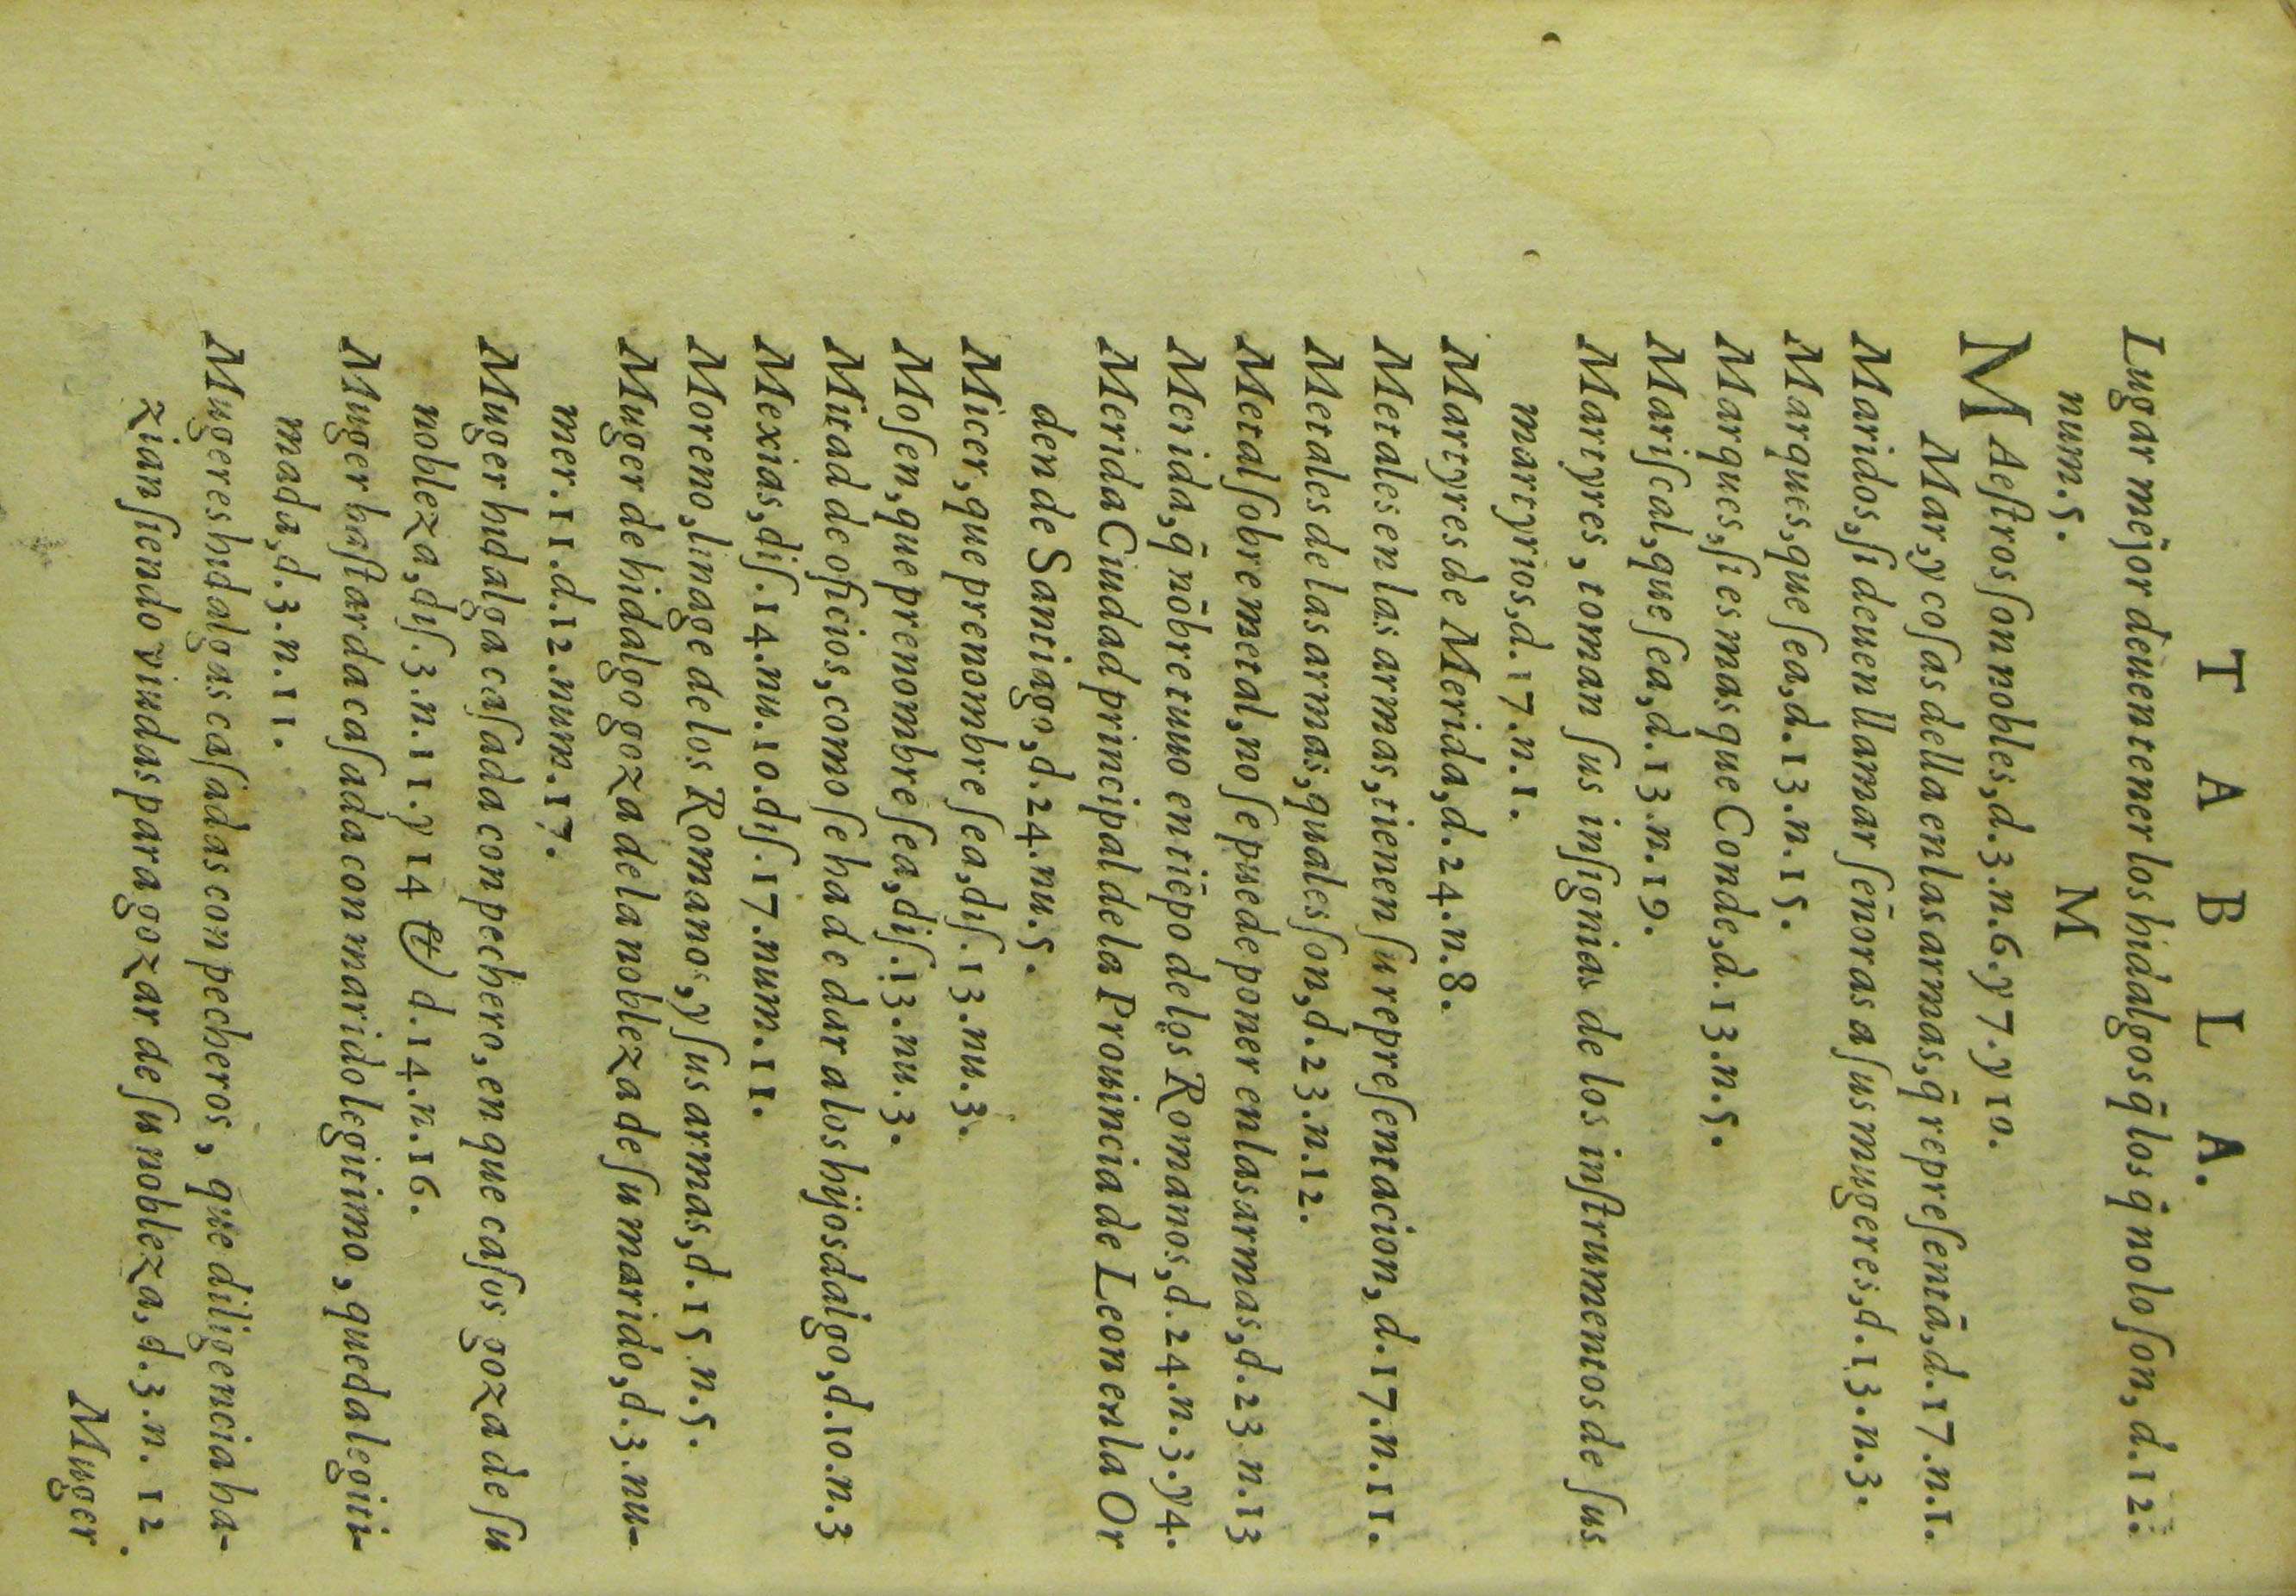 TABLA.
Lugar mejor deuen tener los hidalgos q̃ los q̃ no lo ſon, d.12.
num.5.
M
MAeſtros ſon nobles, d.3.n.6.y 7.y 10.
Mar, y coſas della en las armas, q̃ repreſentā, d.17.n.1.
Maridos, ſi deuen llamar ſeñoras a ſus mugeres, d.13.n.3.
Marques, que ſea, d.13.n.15.
Marques, ſi es mas que Conde, d.13.n.5.
Mariſcal, que ſea, d.13.n.19.
Martyres, toman ſus inſignias de los inſtrumentos de ſus
martyrios, d.17.n.1.
Martyres de Merida, d.24.n.8.
Metales en las armas, tienen ſu repreſentacion, d.17.n.11.
Metales de las armas, quales ſon, d.23.n.12.
Metal ſobre metal, no ſe puede poner en las armas, d.23 n.13
Merida, q̃ nōbre tuuo en tiēpo de los Romanos, d.24.n.3.y 4.
Merida Ciudad principal de la Prouincia de Leon en la Or
den de Santiago, d.24.nu.5.
Micer, que prenombre ſea, diſ.13.nu.3.
Moſen, que prenombre ſea, diſ.13.nu.3.
Mitad de oficios, como ſe ha de dar a los hijosdalgo, d.10.n.3
Mexias, diſ.14.nu.10.diſ.17.num.11.
Moreno, linage de los Romanos, y ſus armas, d.15 n.5.
Muger de hidalgo goza de la nobleza de ſu marido, d.3.nu-
mer.11.d.12.num.17.
Muger hidalga caſada con pechero, en que caſos goza de ſu
nobleza, diſ.3.n.11.y 14 & d.14.n.16.
Muger baſtarda caſada con marido legitimo, queda legiti-
mada, d.3.n.11.
Mugeres hidalgas caſadas con pecheros, que diligencia ha-
zian ſiendo viudas para gozar de ſu nobleza, d.3.n.12
Muger